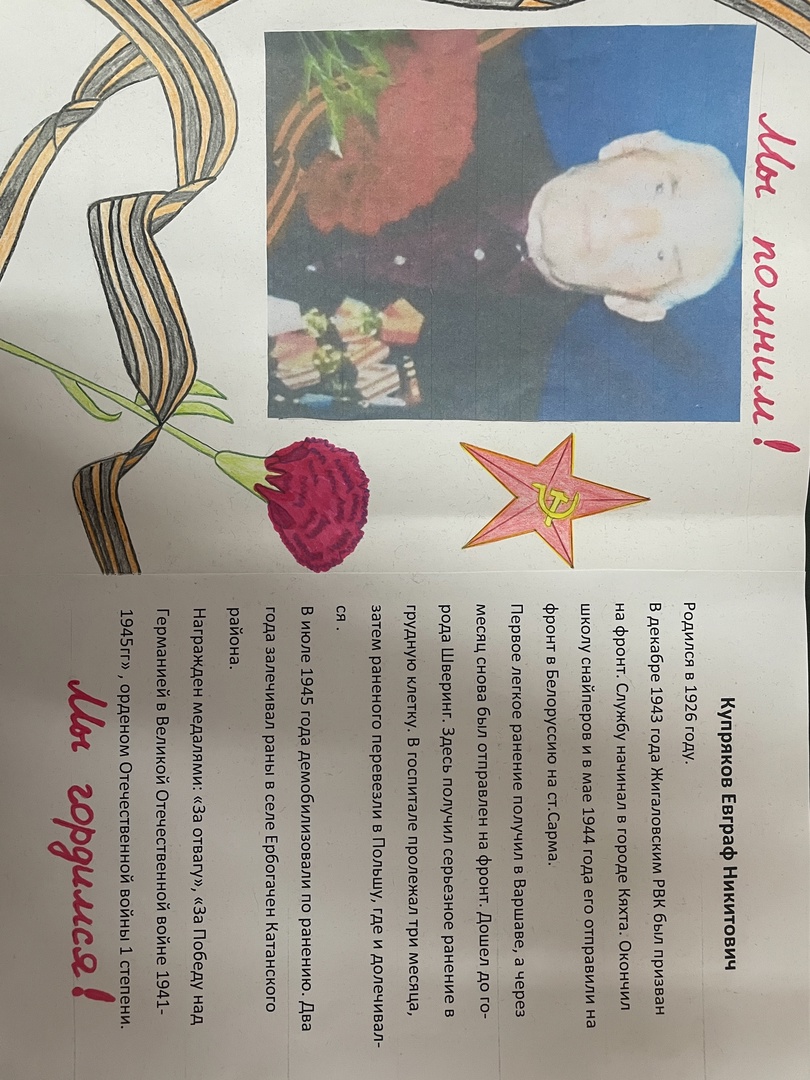 Мы помним!
Купряков Евграф Никитович
Родился в 1926 году.
В декабре 1943 года Жигаловским РВК был призван
на фронт. Службу начинал в городе Кяхта. Окончил
школу снайперов и в мае 1944 года его отправили на
фронт в Белоруссию на ст.Сарма.
Первое легкое ранение получил в Варшаве, а через
месяц снова был отправлен на фронт. Дошел до го-
рода Шверинг. Здесь получил серьезное ранение в
грудную клетку. В госпитале пролежал три месяца,
затем раненого перевезли в Польшу, где и долечивал-
ся .
В июле 1945 года демобилизовали по ранению. Два
года залечивал раны в селе Ербогачен Катанского
района.
Награжден медалями: «За отвагу», «За Победу над
Германией в Великой Отечественной войне 1941-
1945гг» , орденом Отечественной войны 1 степени.
Мы гордимся!